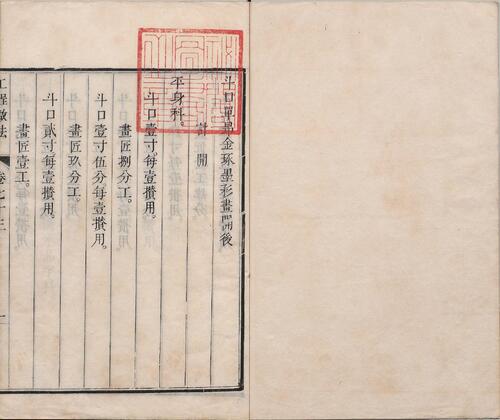 斗口單昂金琢墨彩畫開後
計開
平身科。
斗口壹寸。每壹攢用。
畫匠捌分工。
斗口壹寸伍分每壹攢用。
畫匠玖分工。
斗口貳寸。每壹攢用。
畫匠壹工。
工程做法
卷七十三
一